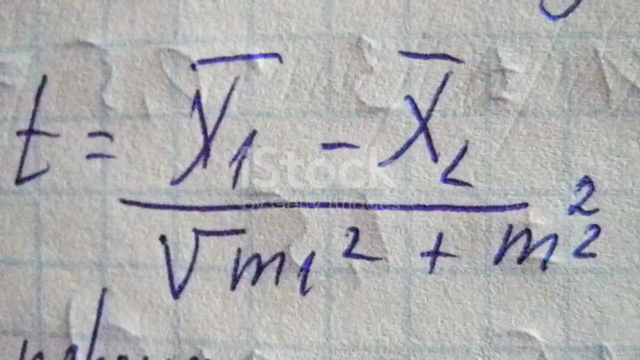 t = X̄₁ - X̄₂
√m₁² + m₂²
iStock
by Getty Images